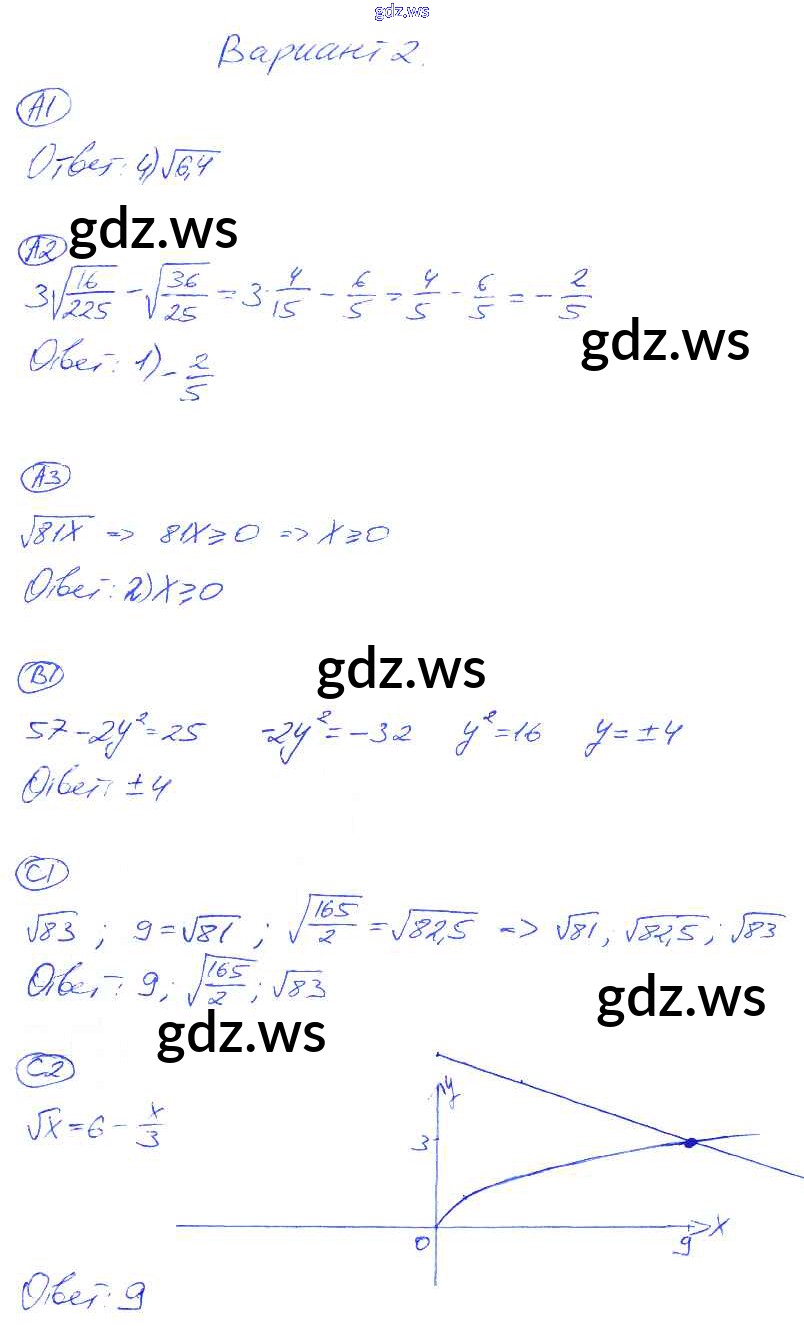 gdz.ws
Вариант 2.
А1
Ответ: 4) √6,4
gdz.ws
А2
3√(16/225) - √(36/25) = 3·4/15 - 6/5 = 4/5 - 6/5 = -2/5
gdz.ws
Ответ: 1) -2/5
А3
√81x => 81x ≥ 0 => x ≥ 0
Ответ: 2) x ≥ 0
gdz.ws
В1
57 - 2y² = 25   -2y² = -32   y² = 16   y = ±4
Ответ: ±4
С1
√83 ; 9 = √81 ; √(165/2) = √82,5 => √81 ; √82,5 ; √83
Ответ: 9 ; √(165/2) ; √83
gdz.ws
gdz.ws
С2
√x = 6 - x/3
y
3
0
9
x
Ответ: 9